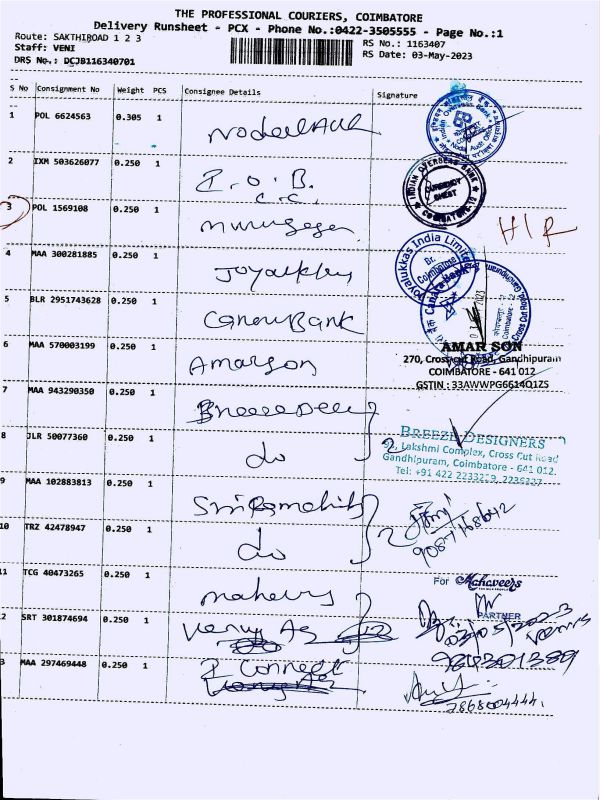 THE PROFESSIONAL COURIERS, COIMBATORE
Delivery Runsheet - PCX - Phone No.:0422-3505555 - Page No.:1
Route: SAKTHIROAD 1 2 3
Staff: VENI
DRS No.: DCJB116340701
RS No.: 1163407
RS Date: 03-May-2023
S No Consignment No Weight PCS Consignee Details Signature
1 POL 6624563 0.305 1
2 IXM 503626077 0.250 1 I.O.B.
C.C.
INDIAN OVERSEAS BANK
CURRENCY CHEST
COIMBATORE-12
3 POL 1569108 0.250 1 Murugesan
4 MAA 300281885 0.250 1 Joyalukkas
Joyalukkas India Limited
Br. Coimbatore
5 BLR 2951743628 0.250 1 Canara Bank
Canara Bank
Cross Cut Road
6 MAA 570003199 0.250 1 Amarson
AMAR SON
270, Cross cut Road, Gandhipuram
COIMBATORE - 641 012
GSTIN : 33AWWPG6614Q1ZS
7 MAA 943290350 0.250 1
8 JLR 50077360 0.250 1 do 2
BREEZE DESIGNERS
Lakshmi Complex, Cross Cut Road
Gandhipuram, Coimbatore - 641 012.
Tel: +91 422 2233219, 2236227
9 MAA 102883813 0.250 1
10 TRZ 42478947 0.250 1 do 2
11 TCG 40473265 0.250 1
For Mahaveers
PARTNER
12 SRT 301874694 0.250 1
03/05/2023
9843301389
13 MAA 297469448 0.250 1 I Connect